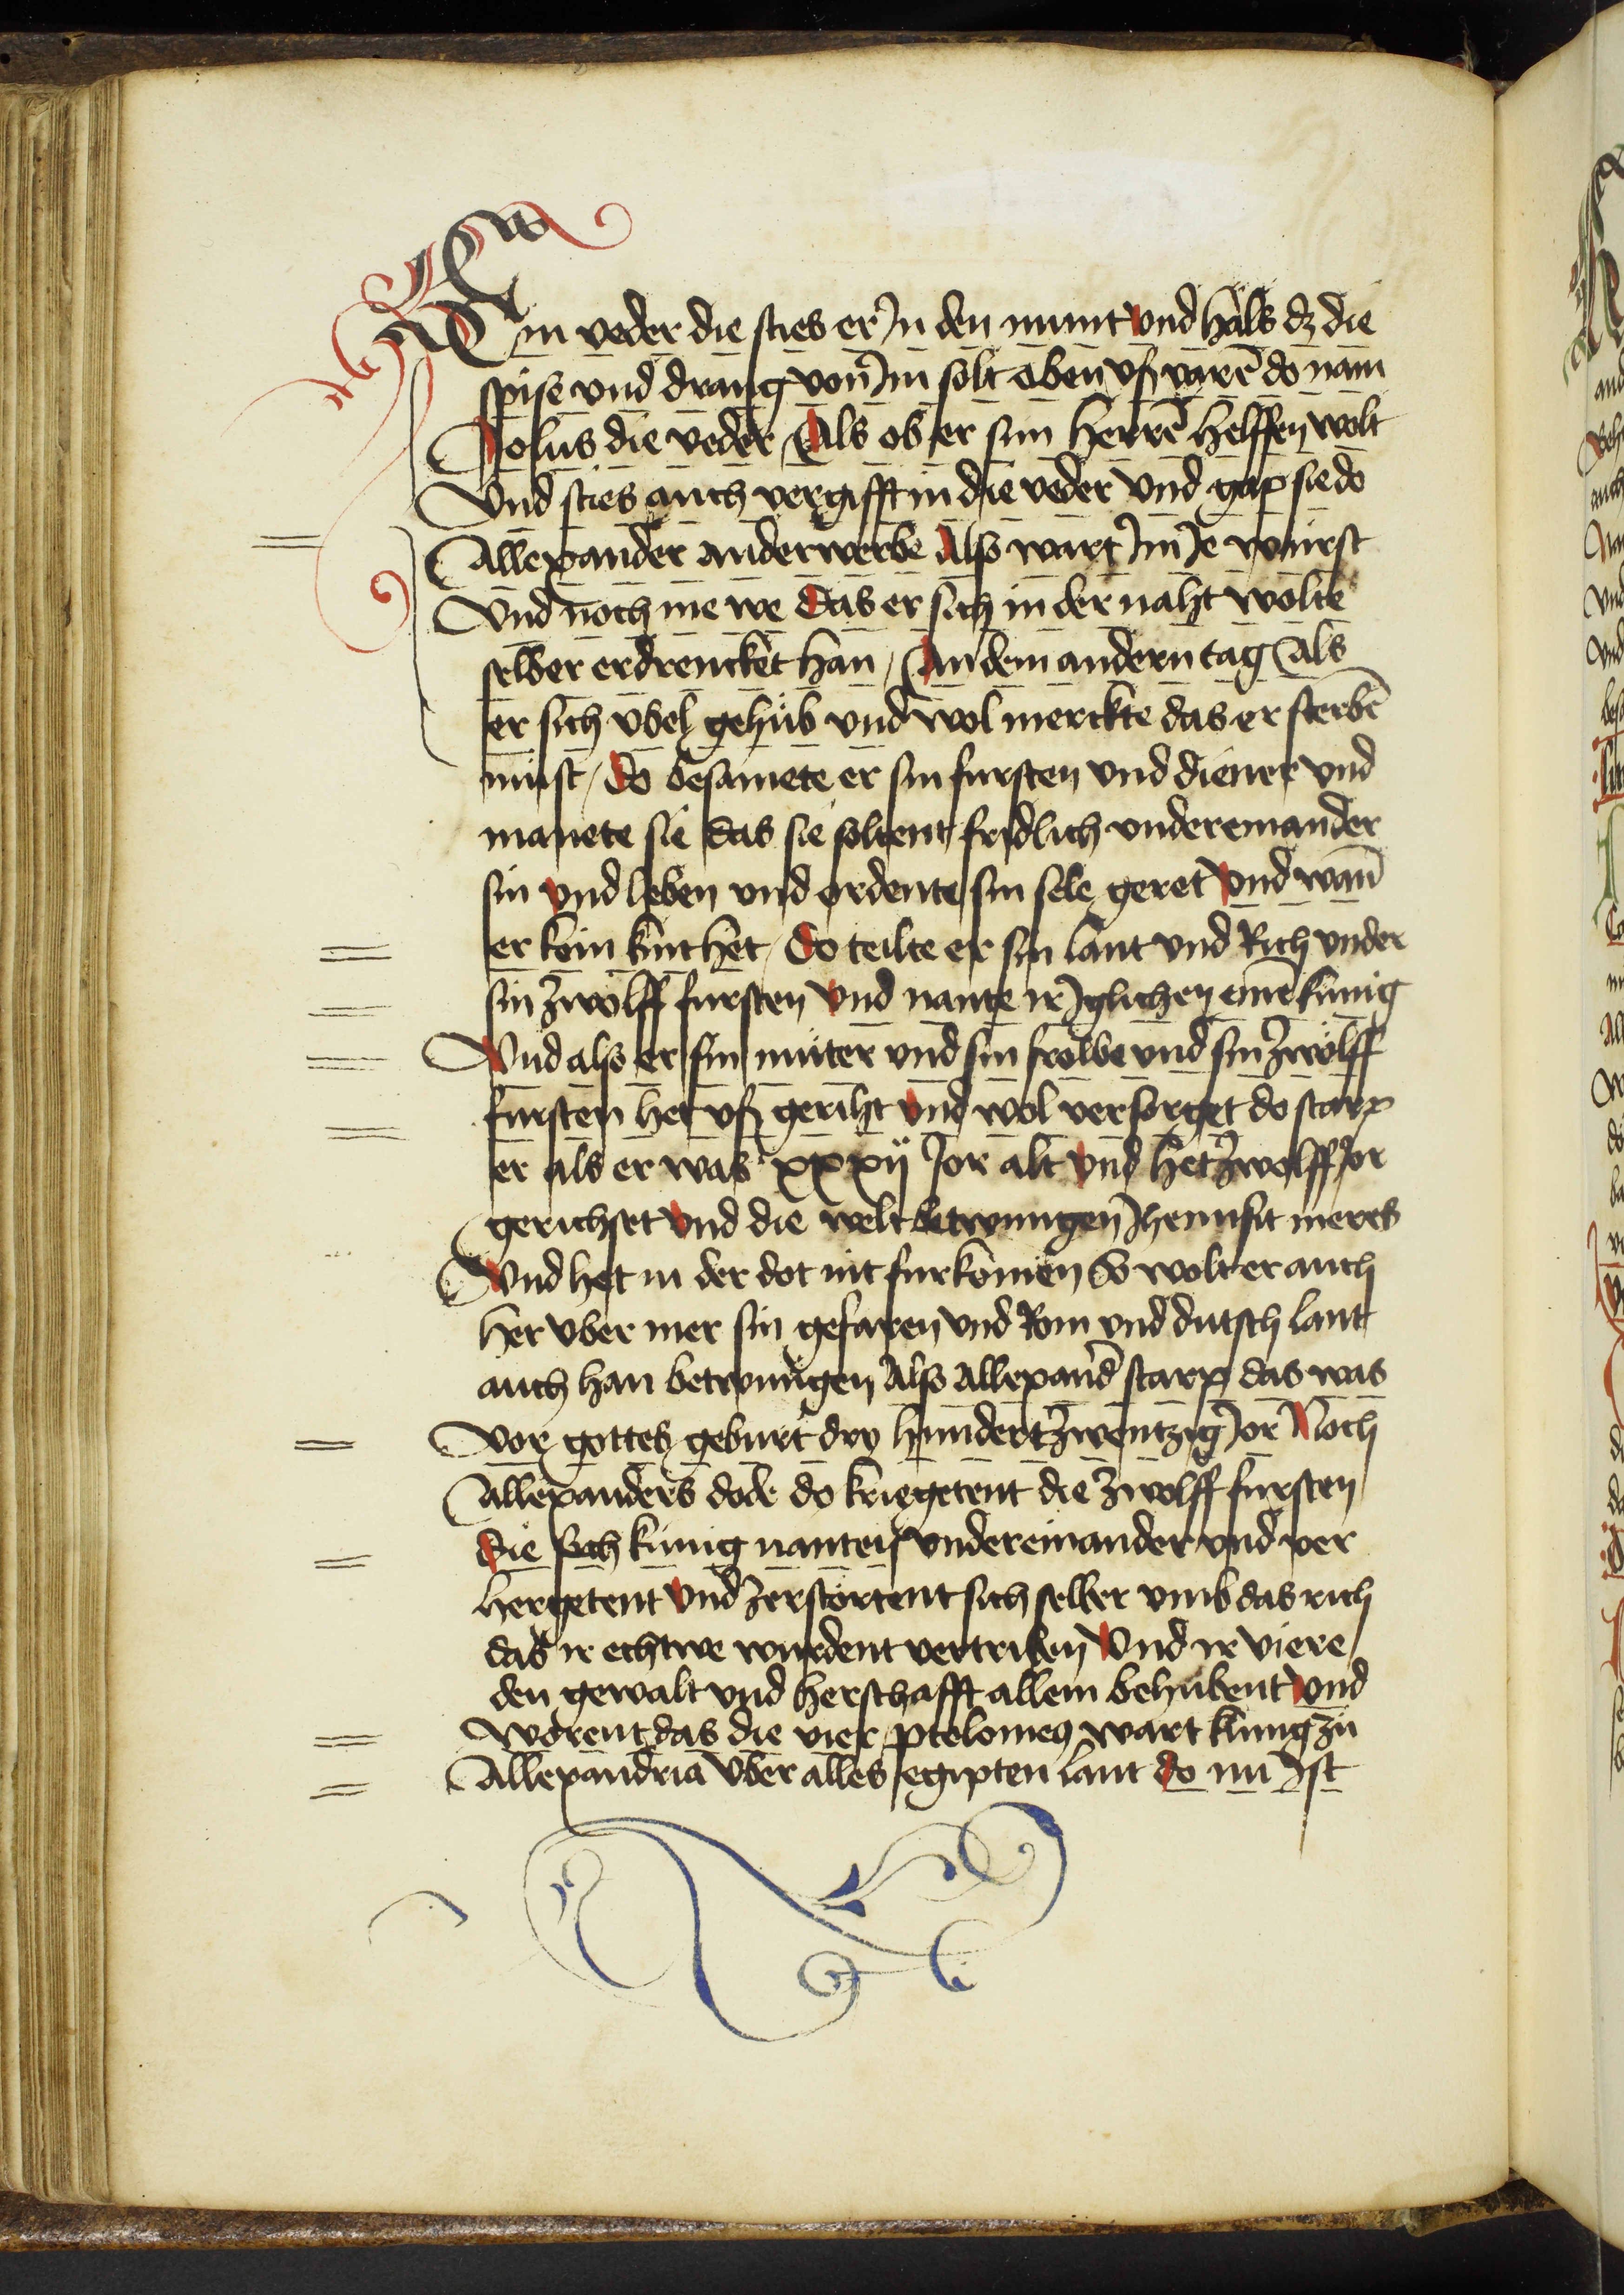 Ein veder die sties er Jn den munt vnd hals dz die
spise vnd drang von Jm solt oben vß varē do nam
Jolus die veder / Als ob er sim herrē helffen wolt
Vnd sties auch vergifft in die veder vnd gap sie do
Allexander anderwerbe Also wart Jm Je wurst
Vnd noch me we Das er sich in der naht wolte
selber erdrencket han / An dem andern tag Als
er sich vbel gehub vnd wol merckte das er sterbē
must / Do besamete er sin fursten vnd diener vnd
manete sie das sie soltent fridlich vndereinander
sin vnd leben vnd ordente sin sele geret Vnd wan̄
er kein kint het / Do teilte er sin lant vnd Rich vnder
sin zwolff fursten Vnd nante ir Jglichen einē kunig
Vnd also er sin muter vnd sin frolbe vnd sin zwolff
fursten het vß geriht vnd wol versorget do starp
er als er was xxxij Jor alt vnd het zwolff Jor
gerichset Vnd die welt betwungen Jhensit meres
Vnd het in der dot nit furkomen So wolt er auch
her vber mer sin gefaren vnd Rom vnd dutsch lant
auch han betwungen Also Allexand̄ starp das was
Vor gottes geburt dry hundert zwentzig Jor Noch
Allexanders dode do kriegetent die zwolff fursten
Die sich kunig nanten vndereinander vnd ver
hergetent Vnd zerstortent sich selber vmb das rich
das ir echtwe wurdent vertriben Vnd ir viere
den gewalt vnd herschafft allein behubent Vnd
worent das die vier ptolomeꝰ wart kunig zu
Allexandria vber alles egipten lant do nu Ist